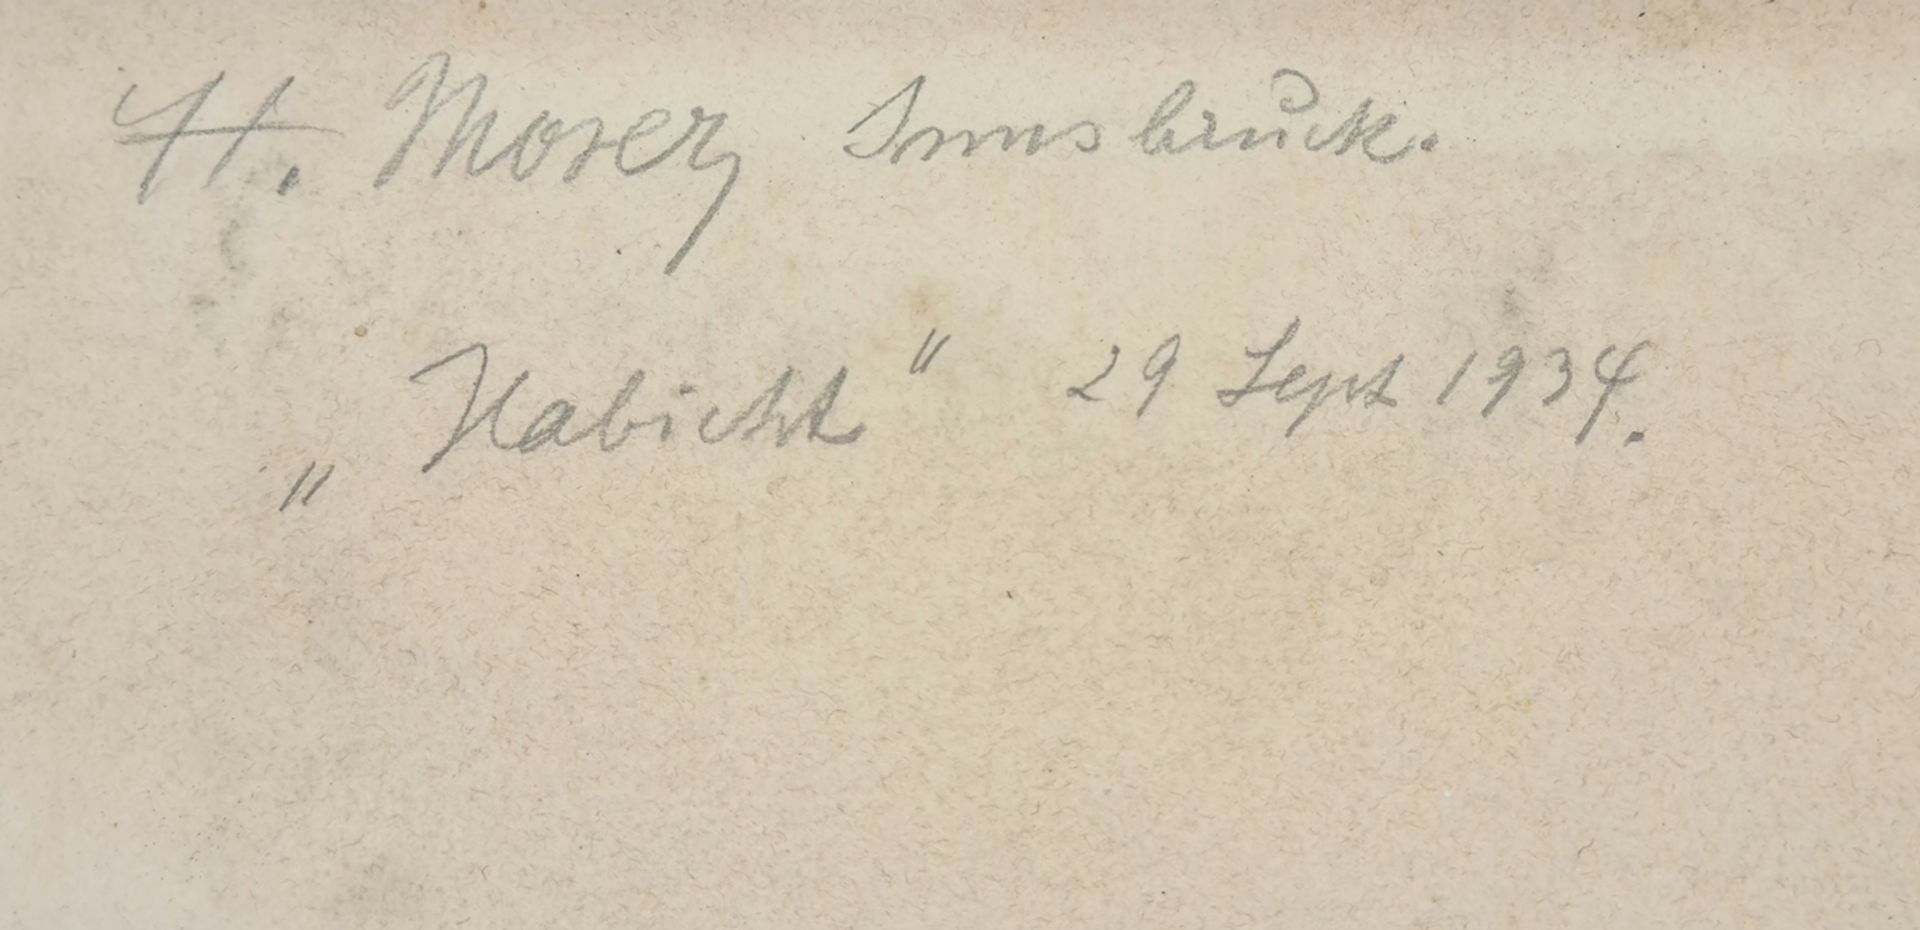 H. Moser Innsbruck.
„Habicht" 29 Sept 1934.